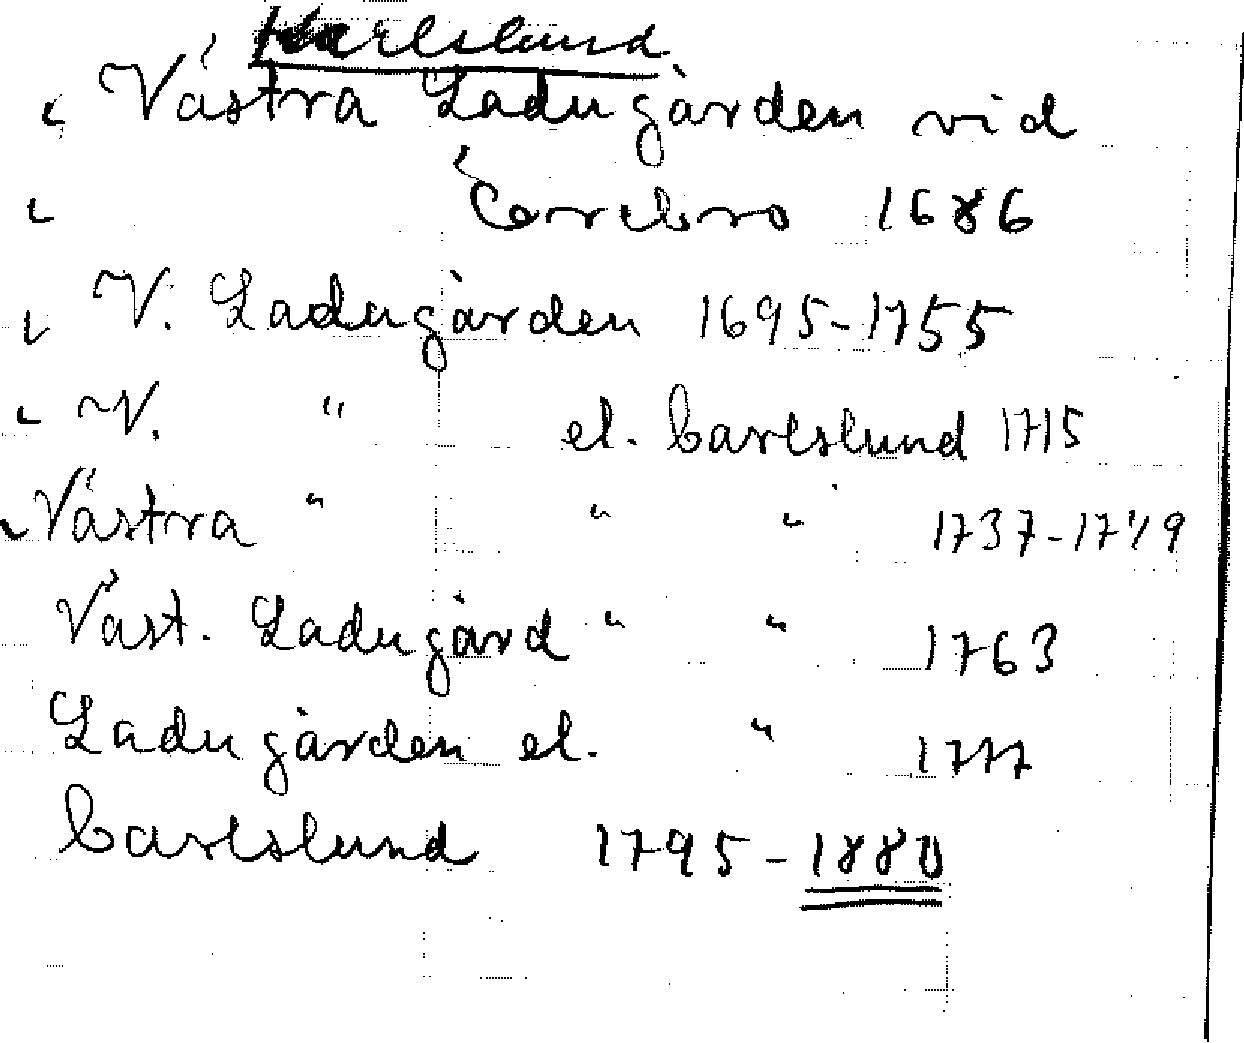 Karlslund
Västra Ladugården vid
Örebro 1686
V. Ladugården 1695-1755
V. " el. Carlslund 1715
Västra " " " 1737-1749
Väst. Ladugård " " 1763
Ladugården el. " 1777
Carlslund 1795-1880